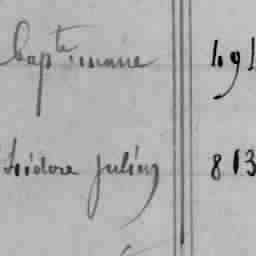 bapt.te marie 491
Isidore Julien 813